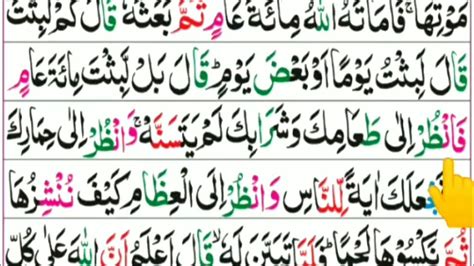 مَوْتِهَا ۚ فَاَمَاتَهُ اللّٰهُ مِائَةَ عَامٍ ثُمَّ بَعَثَهٗ ؕ قَالَ كَمْ لَبِثْتَ
قَالَ لَبِثْتُ يَوْمًا اَوْ بَعْضَ يَوْمٍ ؕ قَالَ بَلْ لَّبِثْتَ مِائَةَ عَامٍ
فَانْظُرْ اِلٰى طَعَامِكَ وَشَرَابِكَ لَمْ يَتَسَنَّهْ ۚ وَانْظُرْ اِلٰى حِمَارِكَ
نَجْعَلَكَ اٰيَةً لِّلنَّاسِ وَانْظُرْ اِلَى الْعِظَامِ كَيْفَ نُنْشِزُهَا
ثُمَّ نَكْسُوْهَا لَحْمًا ؕ فَلَمَّا تَبَيَّنَ لَهٗ ۙ قَالَ اَعْلَمُ اَنَّ اللّٰهَ عَلٰى كُلِّ